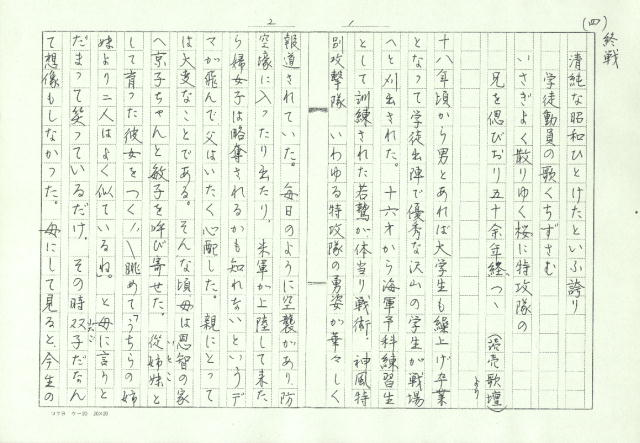 (四)
終戦
清純な昭和ひとけたといふ誇り
学徒動員の歌くちずさむ
いさぎよく散りゆく桜に特攻隊の
兄を偲びおり五十余年経つゝ
(読売歌壇)より
十八年頃から男とあれば大学生も繰上げ卒業
となって学徒出陣で優秀な沢山の学生が戦場
へと刈出された。十六才から海軍予科練習生
として訓練された若鷲が体当り戦術、神風特
別攻撃隊 いわゆる特攻隊の勇姿が華々しく
2
報道されていた。毎日のように空襲があり防
空壕に入ったり出たり、米軍が上陸して来た
ら婦女子は略奪されるかも知れないというデ
マが飛んで父はいたく心配した。親にとって
は大変なことである。そんな頃母は恩智の家
へ京子ちゃんと敏子を呼び寄せた。従姉妹と
いとこ
して育った彼女をつくづく眺めて「うちらの姉
妹より二人はよく似ているね。と母に言うと
だまって笑っているだけ、その時双子だなん
ふたご
て想像もしなかった。母にして見ると今生の
コクヨ ケー20 20×20